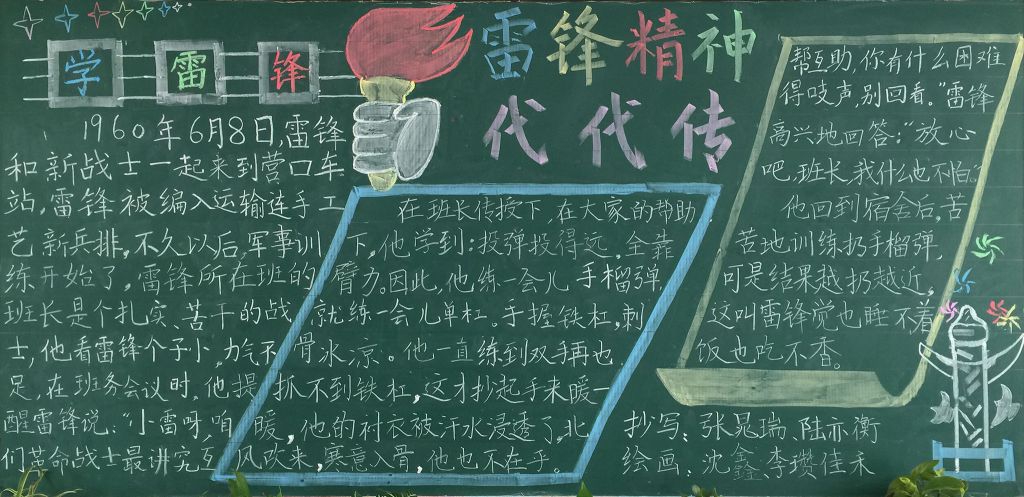 学雷锋
雷锋精神
代代传
1960年6月8日,雷锋
和新战士一起来到营口车
站,雷锋被编入运输连手工
艺新兵排,不久以后,军事训
练开始了,雷锋所在班的
班长是个扎实、苦干的战
士,他看雷锋个子小,力气不
足,在班务会议时,他提
醒雷锋说:“小雷呀,咱
们革命战士最讲究互
在班长传授下,在大家的帮助
下,他学到:投弹投得远,全靠
臂力。因此,他练一会儿手榴弹,
就练一会儿单杠。手握铁杠,刺
骨冰凉。他一直练到双手再也
抓不到铁杠,这才抄起手来暖一
暖,他的衬衣被汗水浸透了,北
风吹来,寒意入骨,他也不在乎。
帮互助,你有什么困难
得吱声,别回看。”雷锋
高兴地回答:“放心
吧,班长,我什么也不怕。”
他回到宿舍后,苦
苦地训练扔手榴弹,
可是结果越扔越近。
这叫雷锋觉也睡不着
饭也吃不香。
抄写:张晁瑞、陆亦衡
绘画:沈鑫、李瓒佳禾